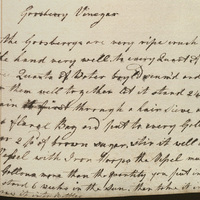 Gooseberry Vinegar
the Gooseberrys are very ripe mash
the hand very well. to every Quart of
Quarts of Water boyl'd and
them well together let it stand 24
through a hair Sieve
flanel Bag and put to every Gall
2 lb of brown sugar. Stir it well
Vessel with Iron hoops the Vessel mu
Gallons more than the quantity you put in
stand 6 weeks in the Sun, then take it